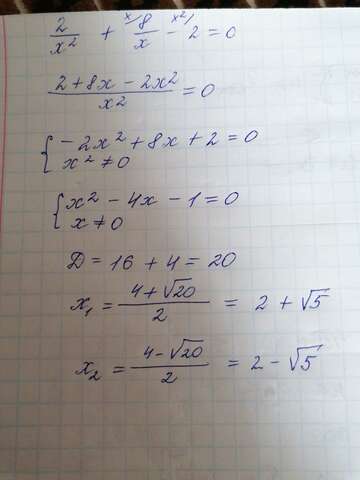 2/x² + ˣ⁾8/x − ˣ²⁾2 = 0
(2 + 8x − 2x²)/x² = 0
{ −2x² + 8x + 2 = 0
x² ≠ 0
{ x² − 4x − 1 = 0
x ≠ 0
D = 16 + 4 = 20
x₁ = (4 + √20)/2 = 2 + √5
x₂ = (4 − √20)/2 = 2 − √5